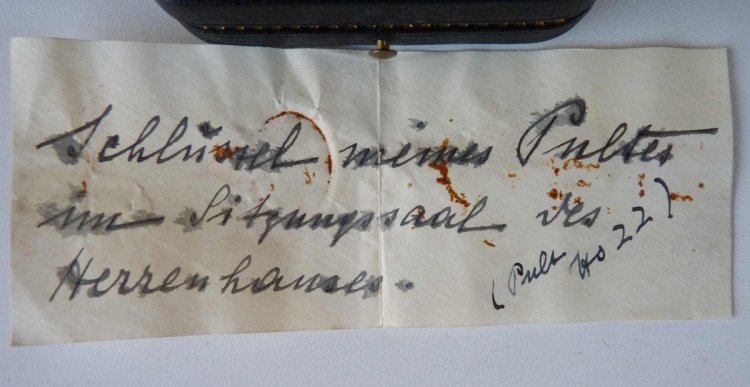 Schlüssel meines Pultes
im Sitzungssaal des
Herrenhauses.
(Pult No 22)